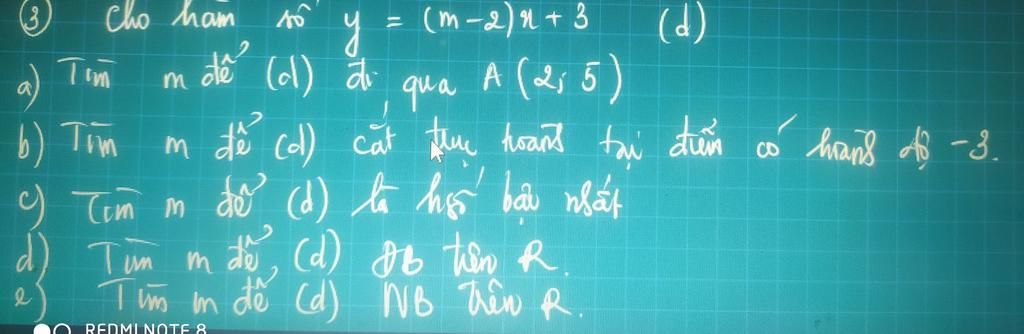 ③ Cho hàm số y = (m-2)x + 3 (d)
a) Tìm m để (d) đi qua A (2; 5)
b) Tìm m để (d) cắt trục hoành tại điểm có hoành độ -3.
c) Tìm m để (d) là hsố bậc nhất
d) Tìm m để (d) ĐB trên R.
e) Tìm m để (d) NB trên R.
REDMI NOTE 8